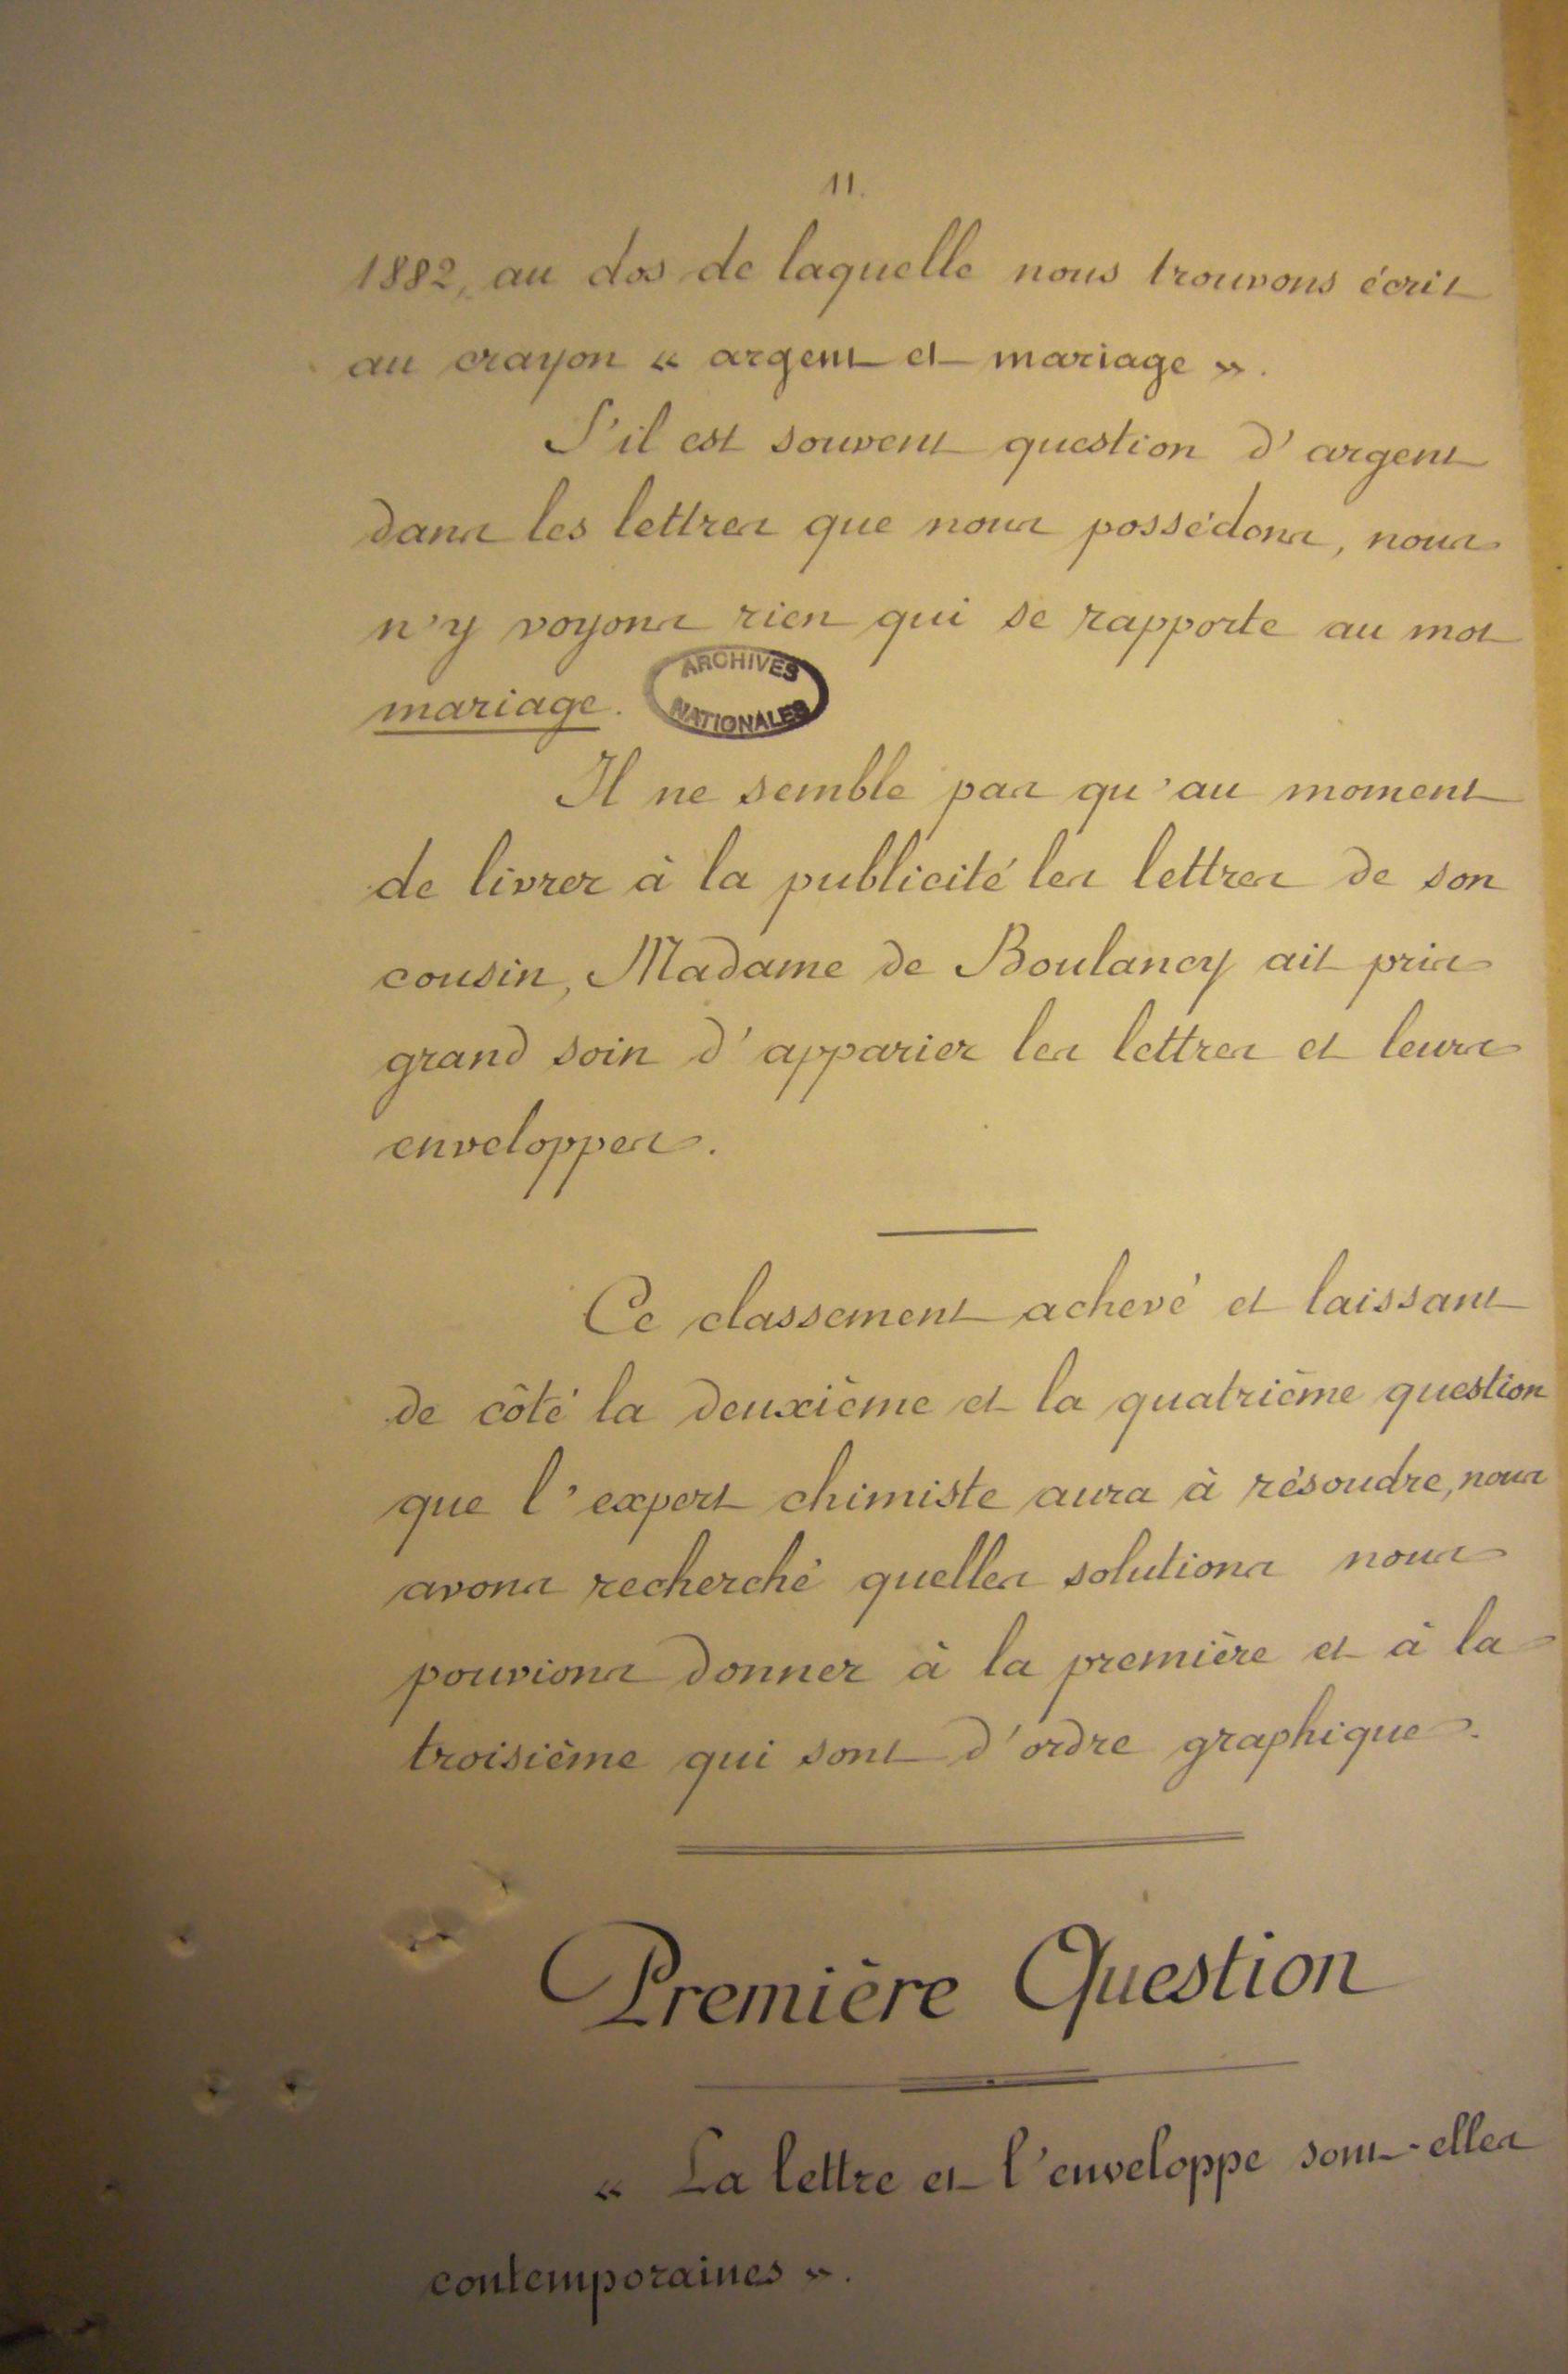 11.
1882, au dos de laquelle nous trouvons écrit
au crayon « argent et mariage ».
S'il est souvent question d'argent
dans les lettres que nous possédons, nous
n'y voyons rien qui se rapporte au mot
mariage.
ARCHIVES
NATIONALES
Il ne semble pas qu'au moment
de livrer à la publicité les lettres de son
cousin, Madame de Boulancy ait pris
grand soin d'apparier les lettres et leurs
enveloppes.
Ce classement achevé et laissant
de côté la deuxième et la quatrième question
que l'expert chimiste aura à résoudre, nous
avons recherché quelles solutions nous
pouvions donner à la première et à la
troisième qui sont d'ordre graphique.
Première Question
« La lettre et l'enveloppe sont-elles
contemporaines ».